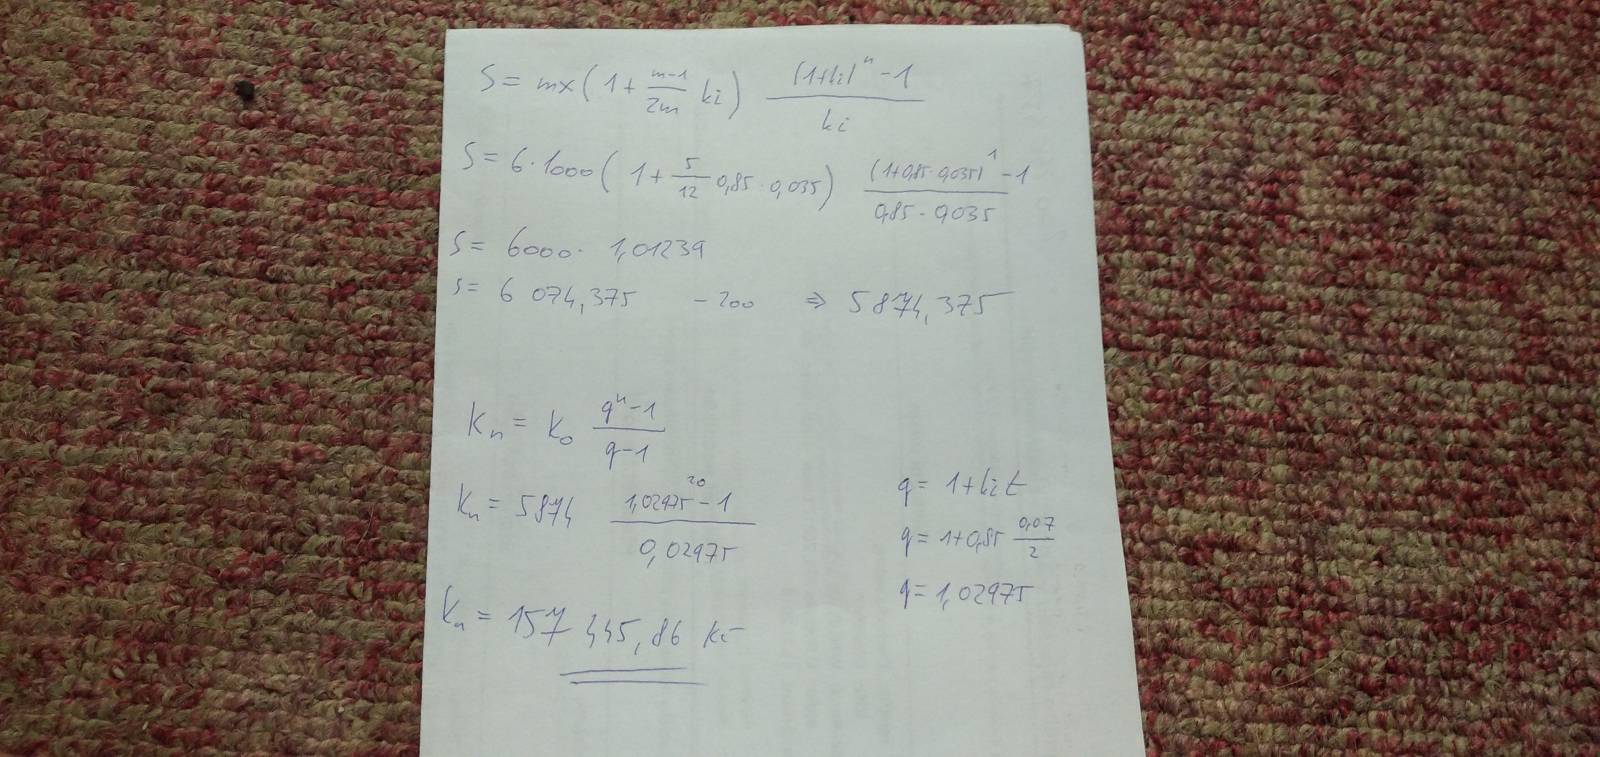 S = mx(1 + \frac{m-1}{2m} ki) \frac{(1+ki)^n - 1}{ki}
S = 6·1000(1 + \frac{5}{12} 0,85·0,035) \frac{(1+0,85·0,035)^1 - 1}{0,85·0,035}
S = 6000· 1,01239
S = 6 074,375 -200 ⇒ 5874,375
K_n = k_0 \frac{q^n - 1}{q-1}
K_n = 5874 \frac{1,02975^{20} - 1}{0,02975}
q = 1+kit
q = 1+0,85 \frac{0,07}{2}
q = 1,02975
K_n = 157 445,86 Kč